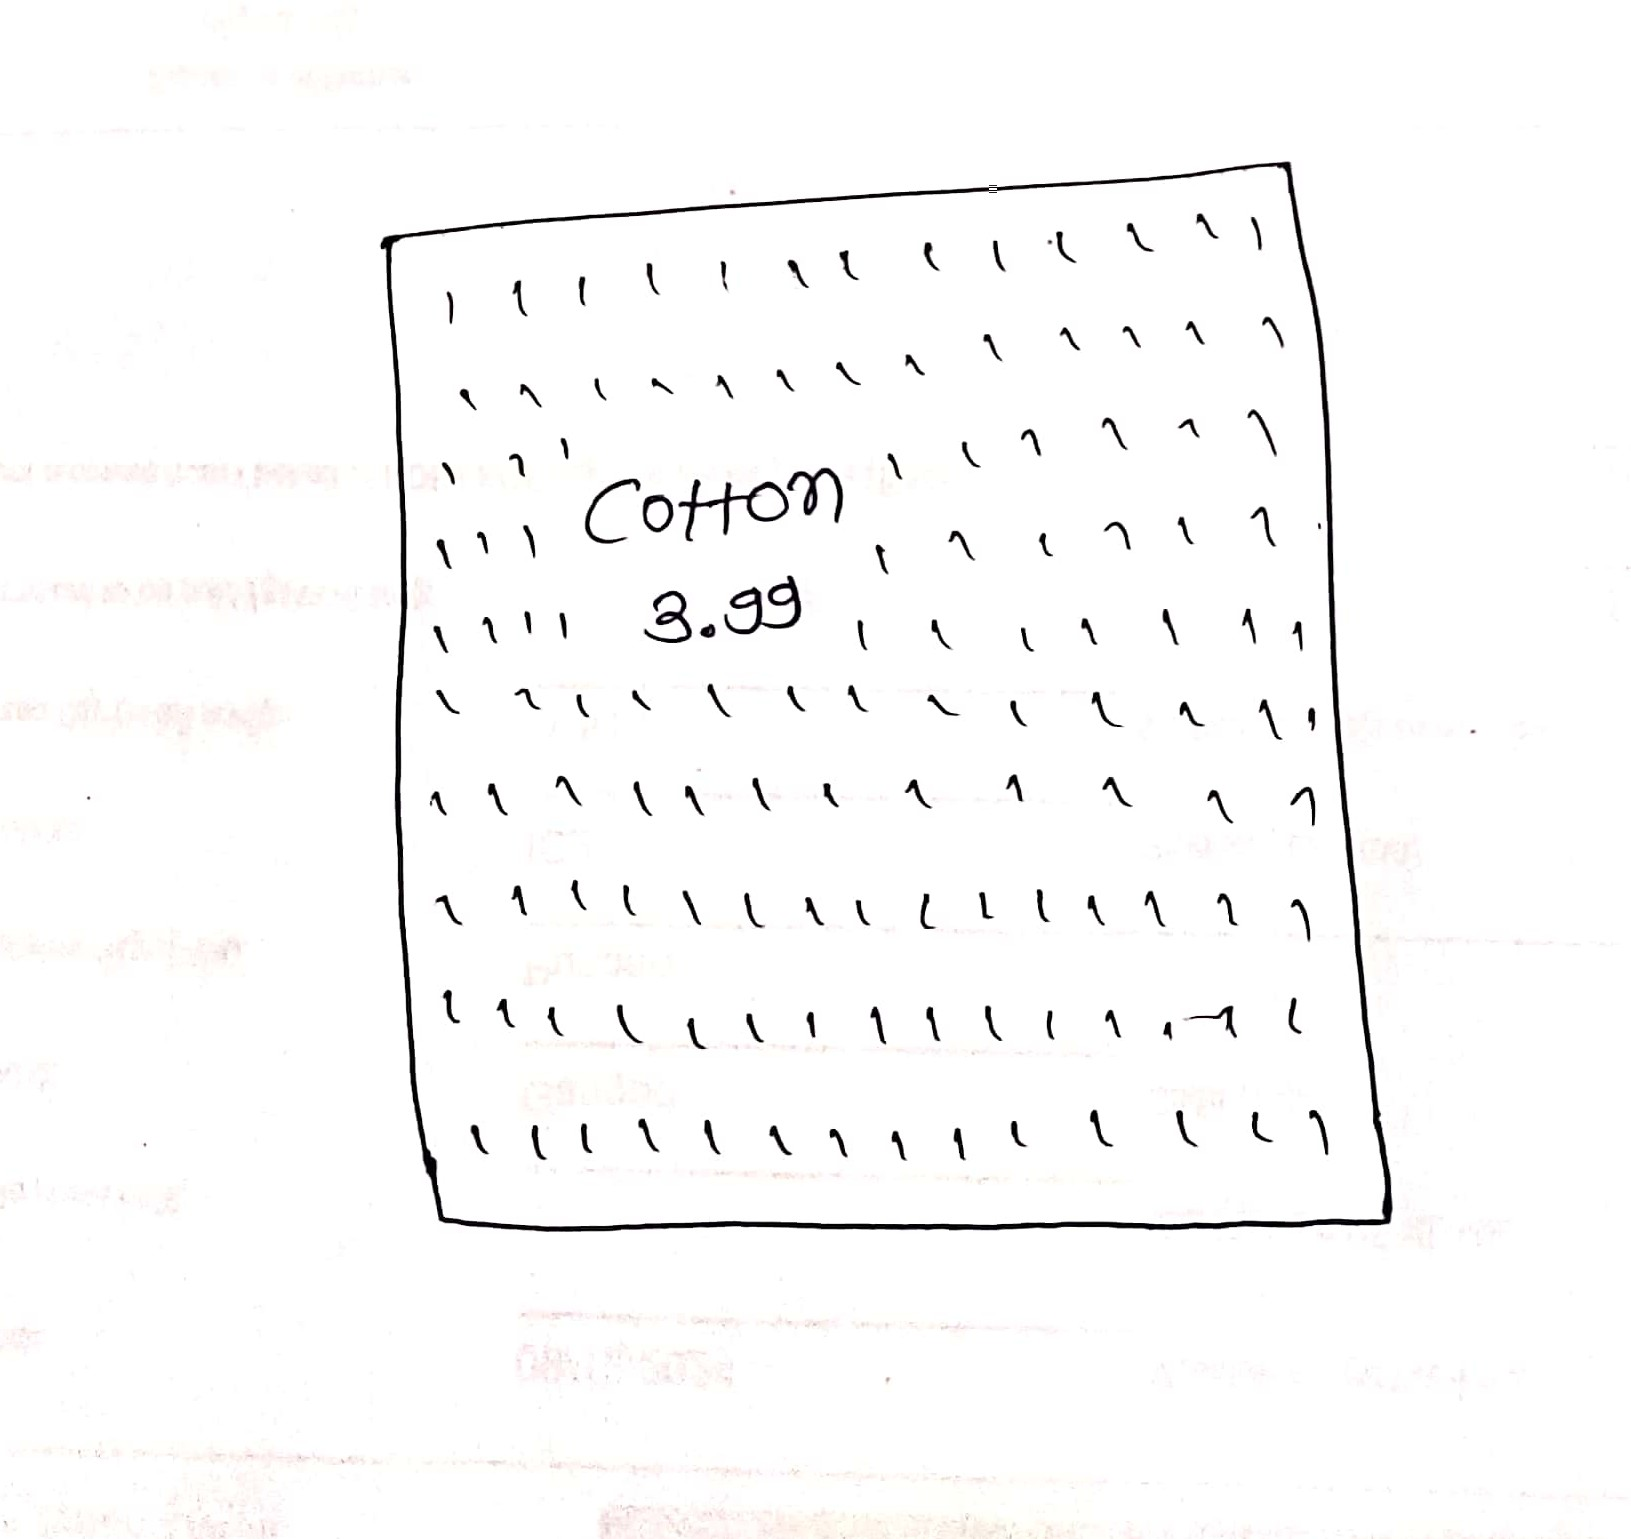 Cotton
3.99